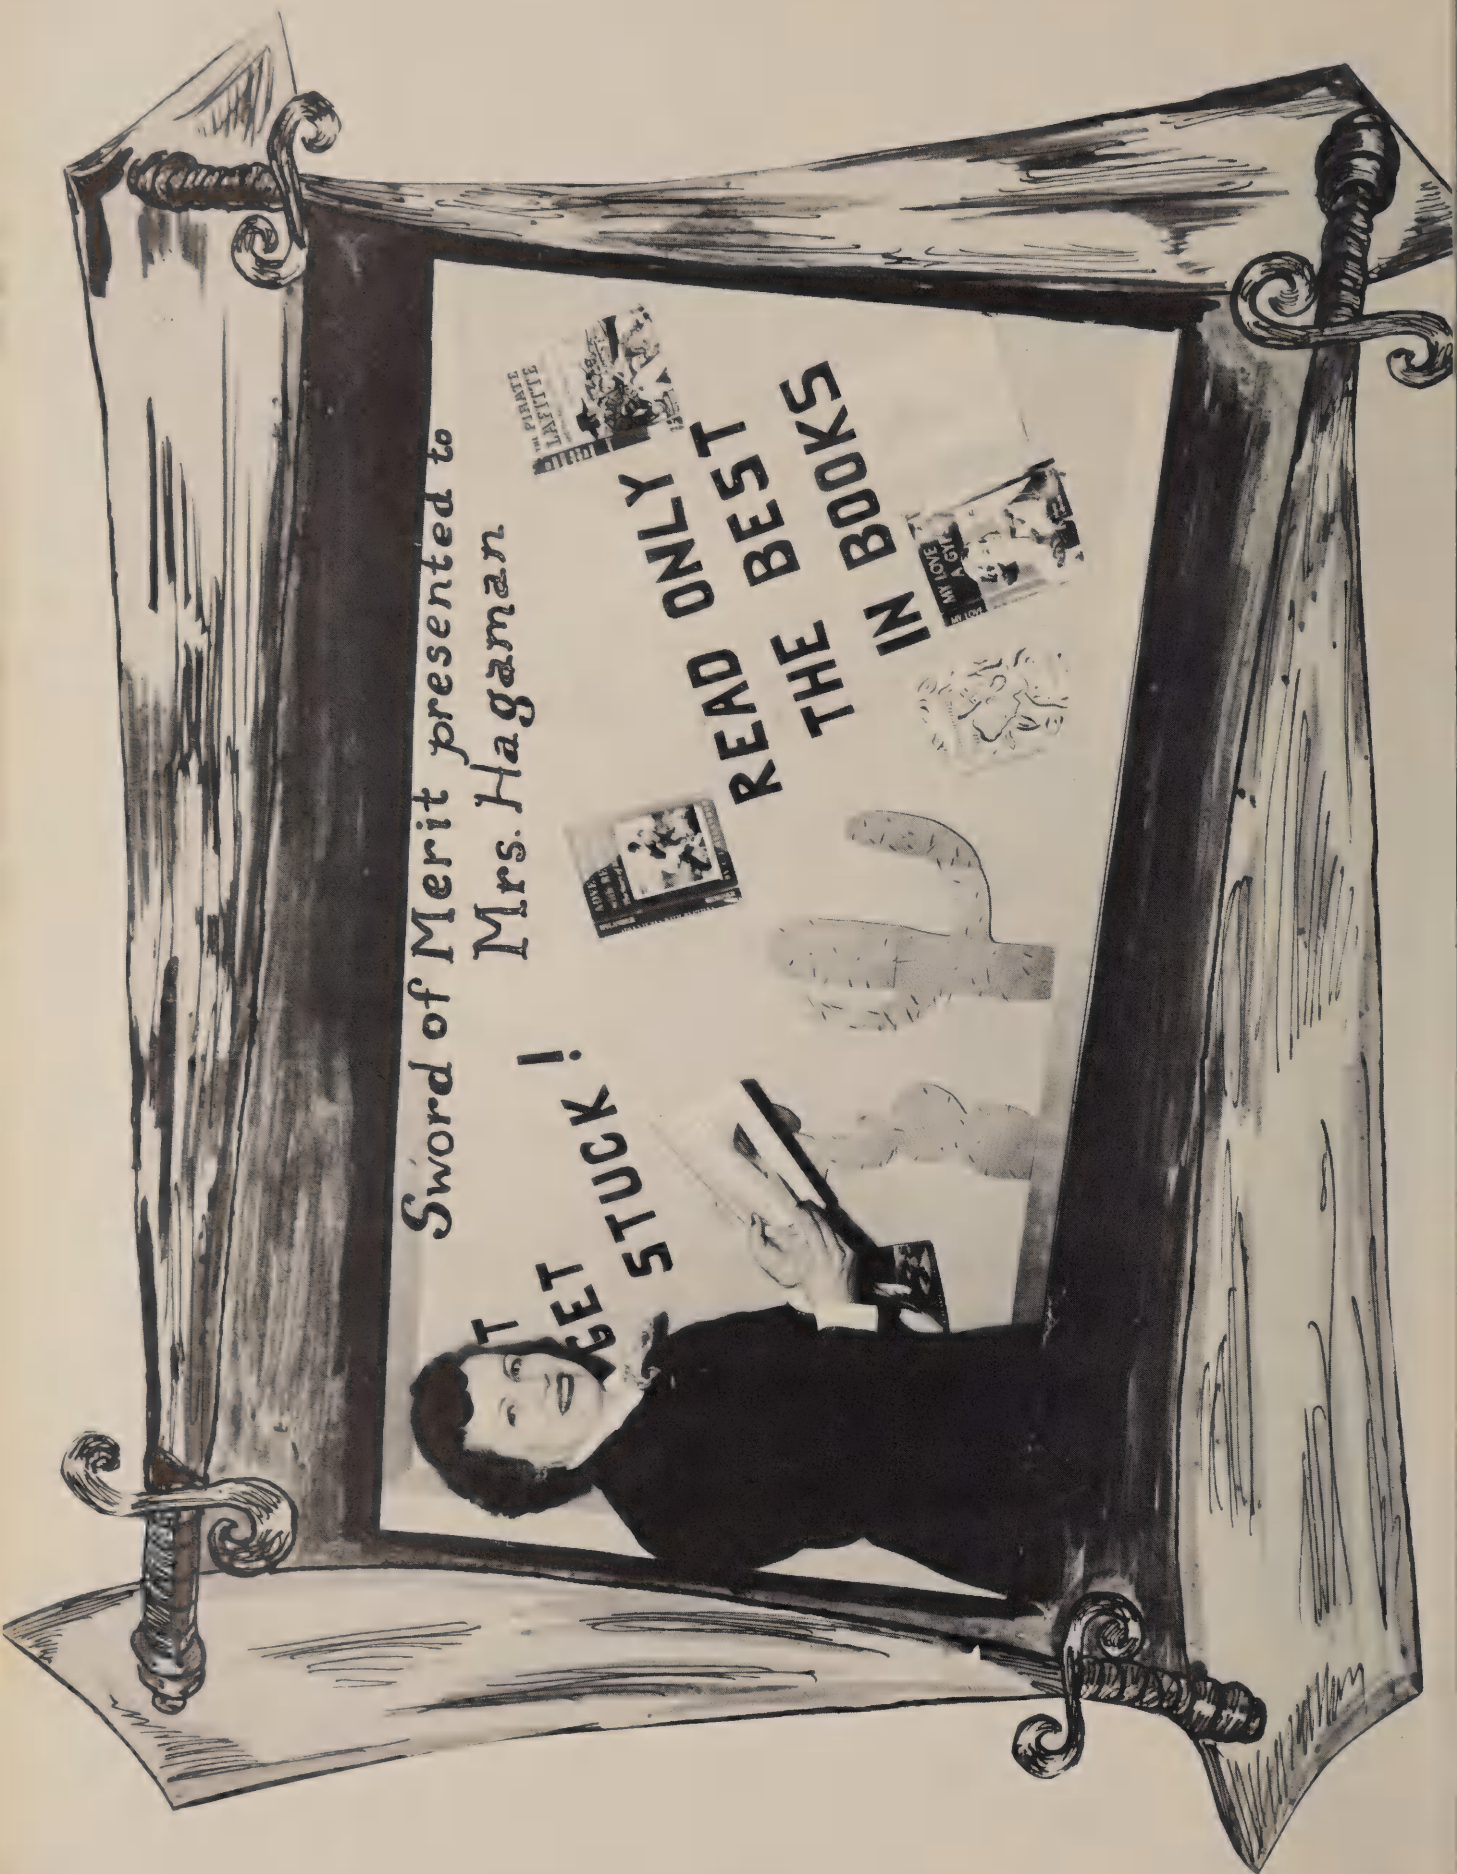 Sword of Merit presented to
Mrs. Hagaman
T
GET
STUCK!
READ ONLY
THE BEST
IN BOOKS
THE PIRATE
LAFITTE
MY LOVE
MY LOVE